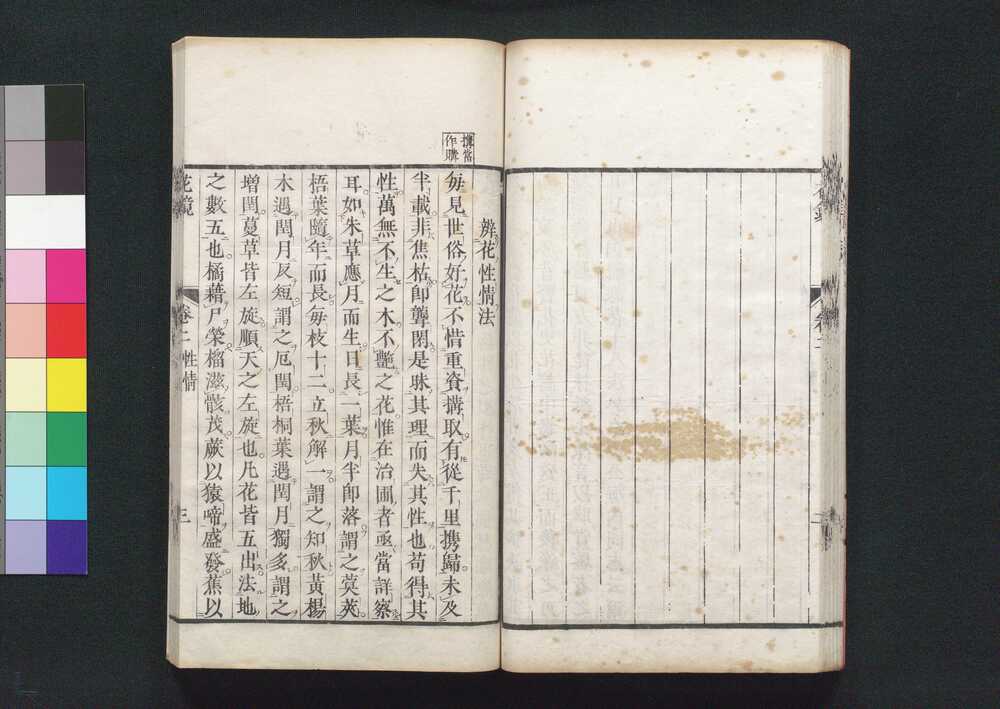 搆當
作購
辨花性情法
毎見世俗好花不惜重資搆取有從千里携歸未及
半載非焦枯卽聾閉是昧其理而失其性也苟得其
性萬無不生之木不艷之花惟在治圃者亟當詳察
耳如朱草應月而生日長一葉月半卽落謂之蓂莢
梧葉隨年而長毎枝十二立秋解一謂之知秋黃楊
木遇閏月反短謂之厄閏梧桐葉遇閏月獨多謂之
增閏蔓草皆左旋順天之左旋也凡花皆五出法地
之數五也橘藉尸榮榴滋骸茂蕨以猿啼盛發蕉以
花鏡
卷二
性情
三